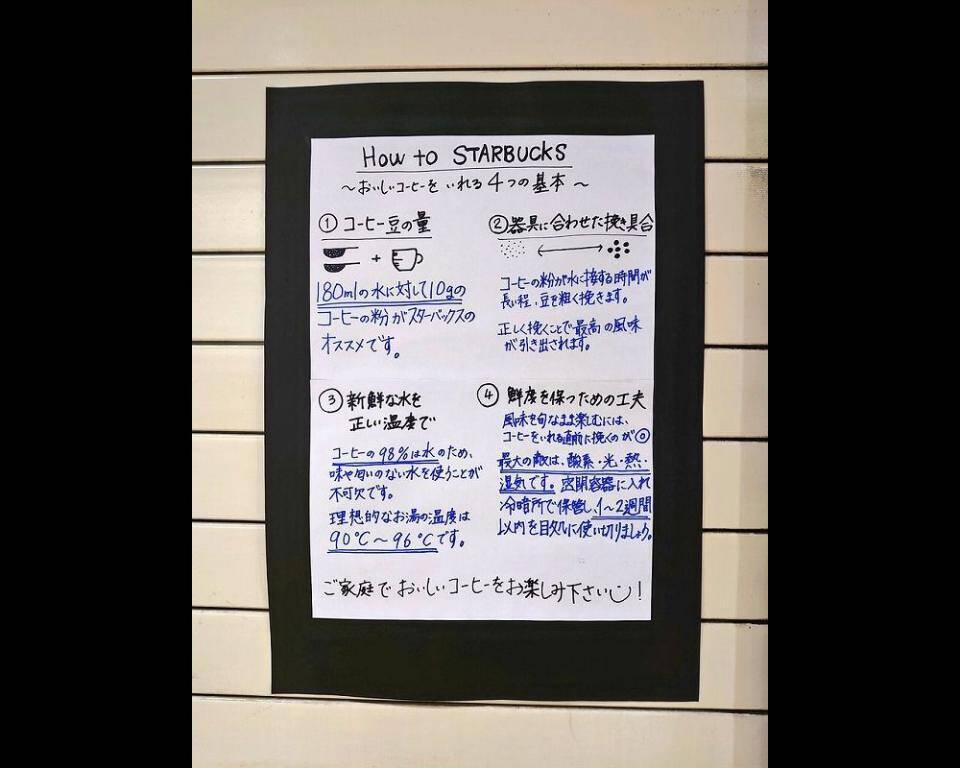 How to STARBUCKS
～おいしいコーヒーを いれる 4つの基本～
① コーヒー豆の量
180mlの水に対して10gの
コーヒーの粉がスターバックスの
オススメです。
② 器具に合わせた挽き具合
コーヒーの粉が水に接する時間が
長い程、豆を粗く挽きます。
正しく挽くことで最高の風味
が引き出されます。
③ 新鮮な水を
正しい温度で
コーヒーの98%は水のため、
味や匂いのない水を使うことが
不可欠です。
理想的なお湯の温度は
90℃～96℃です。
④ 鮮度を保つための工夫
風味を旬なまま楽しむには、
コーヒーをいれる直前に挽くのが◎
最大の敵は、酸素・光・熱・
湿気です。密閉容器に入れ
冷暗所で保管し、1～2週間
以内を目処に使い切りましょう。
ご家庭で おいしいコーヒーをお楽しみ下さい!